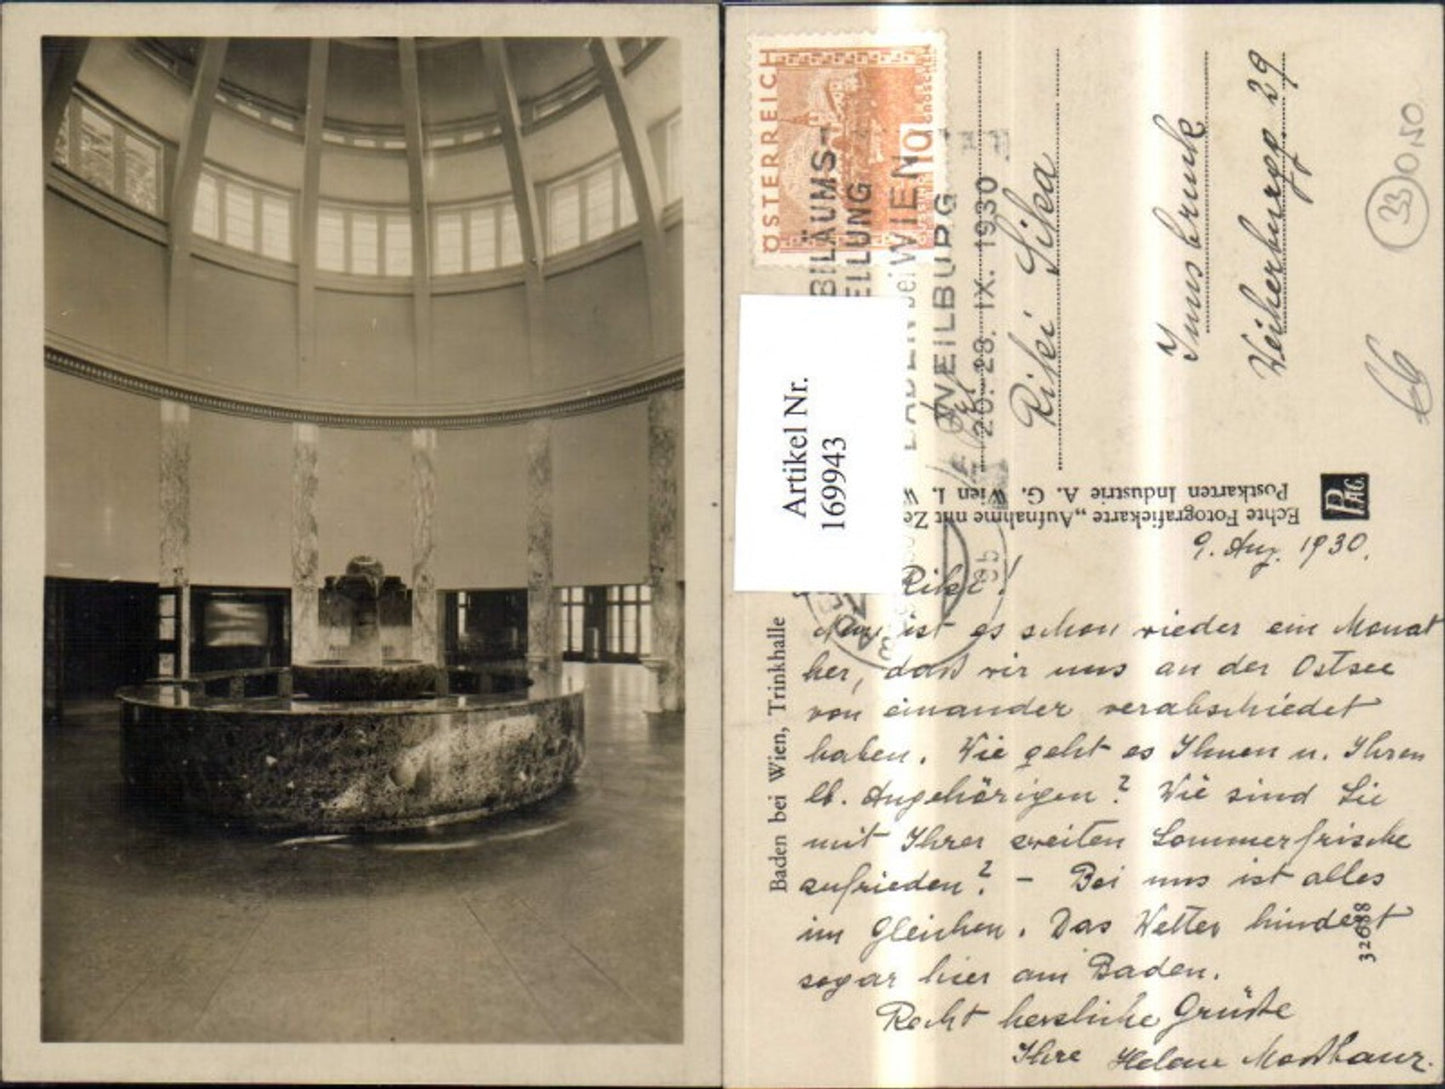 ÖSTERREICH
10
BILÄUMS-
ELLUNG
bei WIEN
WEILBURG
20.-28. IX. 1930
Riki Sika
Innsbruck
Weiherburgg. 29
33
0,50
66
Artikel Nr.
169943
Echte Fotografiekarte „Aufnahme mit Ze
Postkarten Industrie A. G. Wien I. W
PAG
Baden bei Wien, Trinkhalle
32688
9. Aug. 1930.
Riki!
Nun ist es schon wieder ein Monat
her, daß wir uns an der Ostsee
von einander verabschiedet
haben. Wie geht es Ihnen u. Ihren
lb. Angehörigen? Wie sind Sie
mit Ihrer zweiten Sommerfrische
zufrieden? – Bei uns ist alles
im Gleichen. Das Wetter hindert
sogar hier am Baden.
Recht herzliche Grüße
Ihre Helene